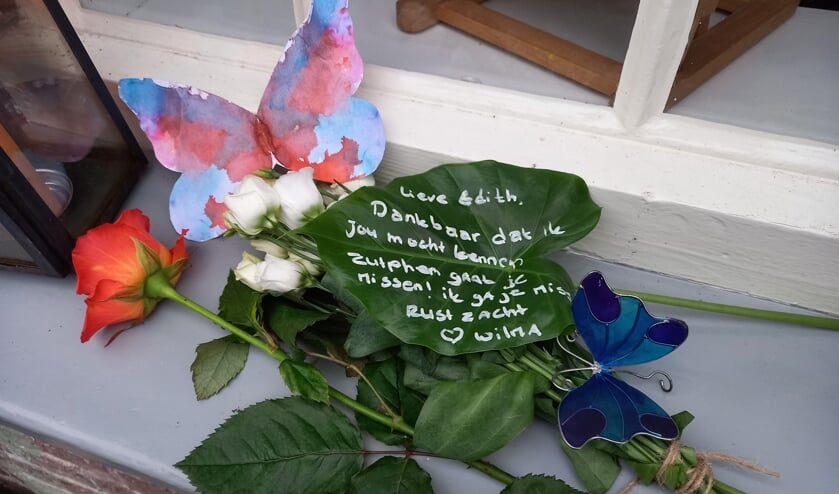 Lieve Edith.
Dankbaar dat ik
jou mocht kennen
Zutphen gaat je
missen! ik ga je mis
Rust zacht
♡ Wilma